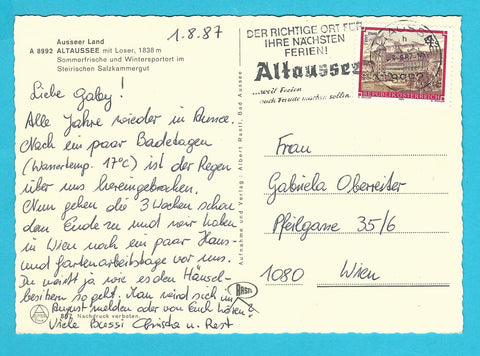 Ausseer Land
A 8992 ALTAUSSEE mit Loser, 1838 m
Sommerfrische und Wintersport im
Steirischen Salzkammergut
1.8.87
Liebe Gaby!
Alle Jahre wieder in Aussee.
Nach ein paar Badetagen
(Wassertemp. 17°C) ist der Regen
über uns hereingebrochen.
Nun gehen die 3 Wochen schon
dem Ende zu und wir haben
in Wien noch ein paar Haus-
und Gartenarbeitstage vor uns.
Du weißt ja wie es den Häusel-
besitzern so geht. Man wird sich im
August melden oder von Euch hören?
Viele Bussi Christa u. Rest
Nachdruck verboten.
Aufnahme und Verlag: Albert Rastl, Bad Aussee
RASTL
DER RICHTIGE ORT FÜR
IHRE NÄCHSTEN
FERIEN!
Altaussee
...weil Ferien
auch Freude machen sollen.
REPUBLIK ÖSTERREICH
Frau
Gabriela Oberreiter
Pfeilgasse 35/6
1080 Wien